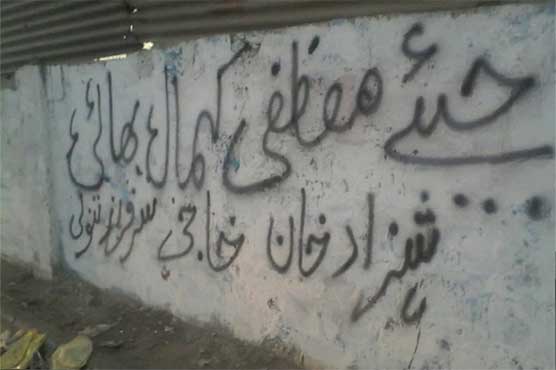 جیئے مصطفی کمال بھائی
شہزاد خان حاجی سرفراز تنولی